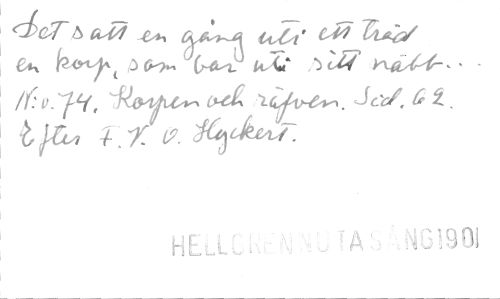 Det satt en gång uti ett träd
en korp, som bar uti sitt näbb...
N:o. 74. Korpen och räfven. Sid. 62.
Efter F. V. O. Hyckert.
HELLGREN NUTASÅNG 1901